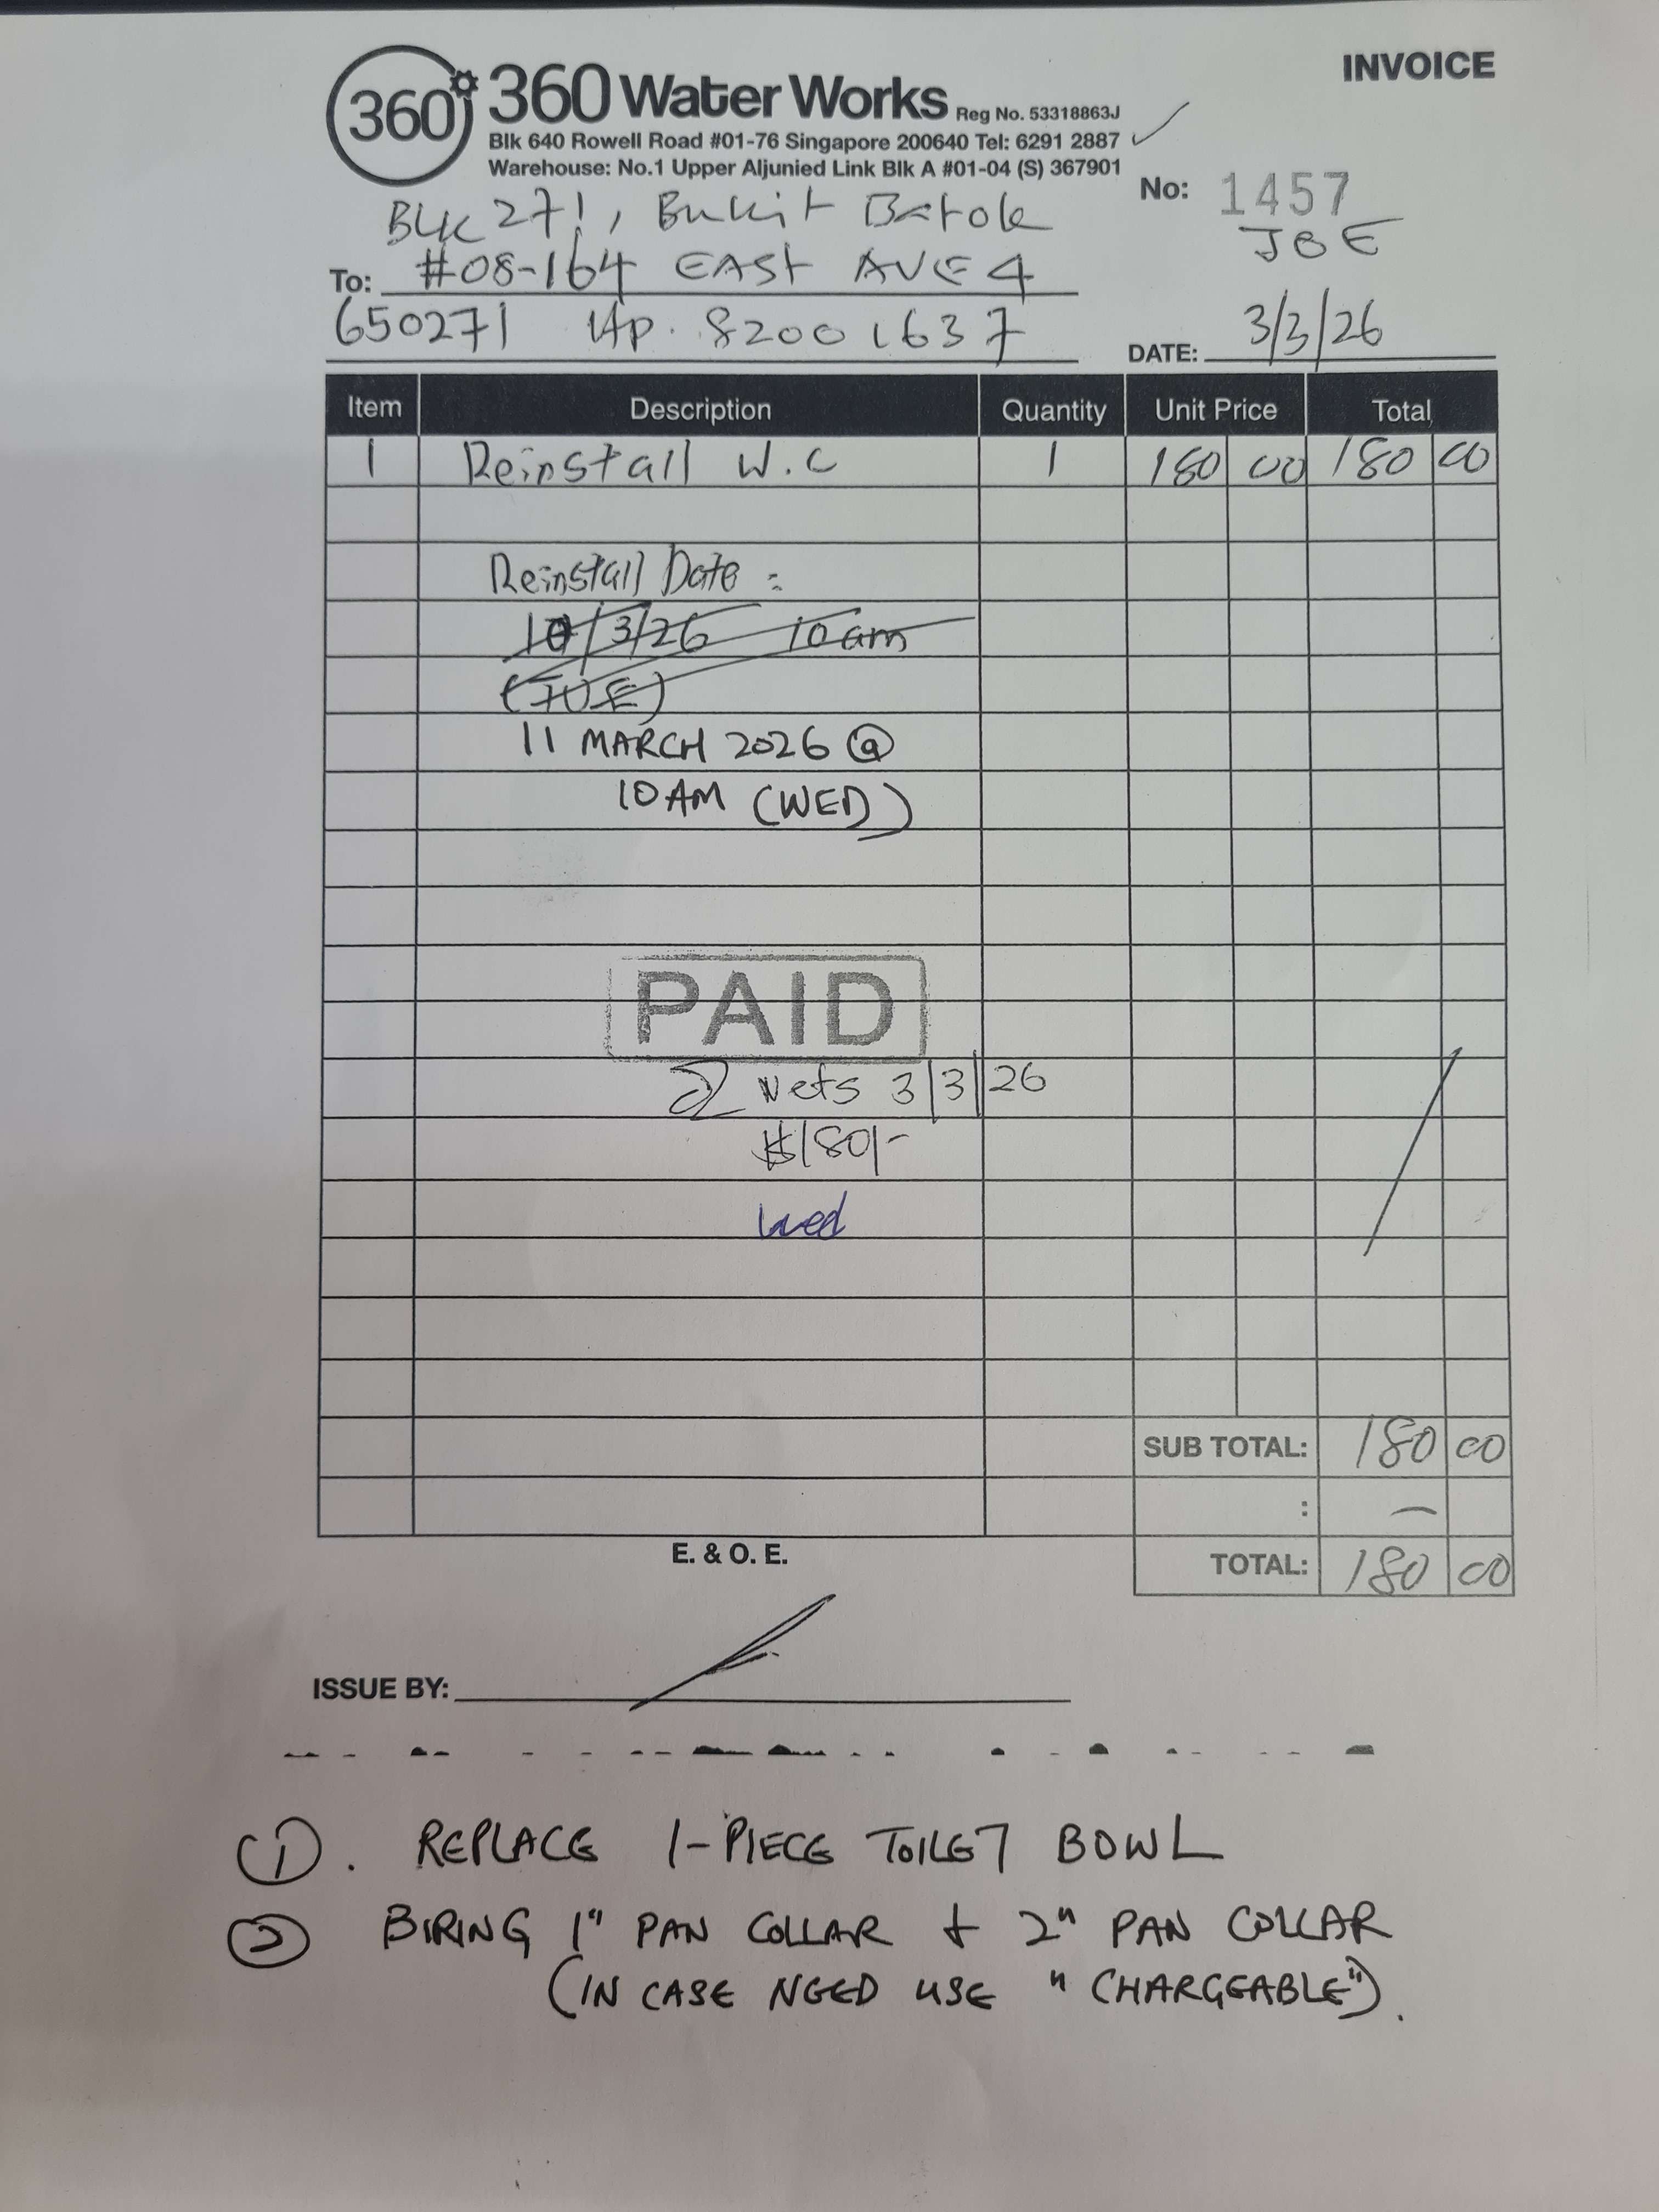 INVOICE
360°
360 Water Works Reg No. 53318863J
Blk 640 Rowell Road #01-76 Singapore 200640 Tel: 6291 2887
Warehouse: No.1 Upper Aljunied Link Blk A #01-04 (S) 367901
No: 1457
JOE
BLK 271, Bukit Batok
To: #08-164 EAST AVE 4
650271 Hp. 8200 1637
DATE: 3/3/26
Item Description Quantity Unit Price Total
1 Reinstall W.C 1 180 00 180 00
Reinstall Date :
10/3/26 10am
(TUE)
11 MARCH 2026 @
10AM (WED)
PAID
Nets 3/3/26
$180/-
wed
SUB TOTAL: 180 00
: —
TOTAL: 180 00
E. & O. E.
ISSUE BY:
1. REPLACE 1-PIECE TOILET BOWL
2 BIRING 1" PAN COLLAR + 2" PAN COLLAR
(IN CASE NEED USE "CHARGEABLE").